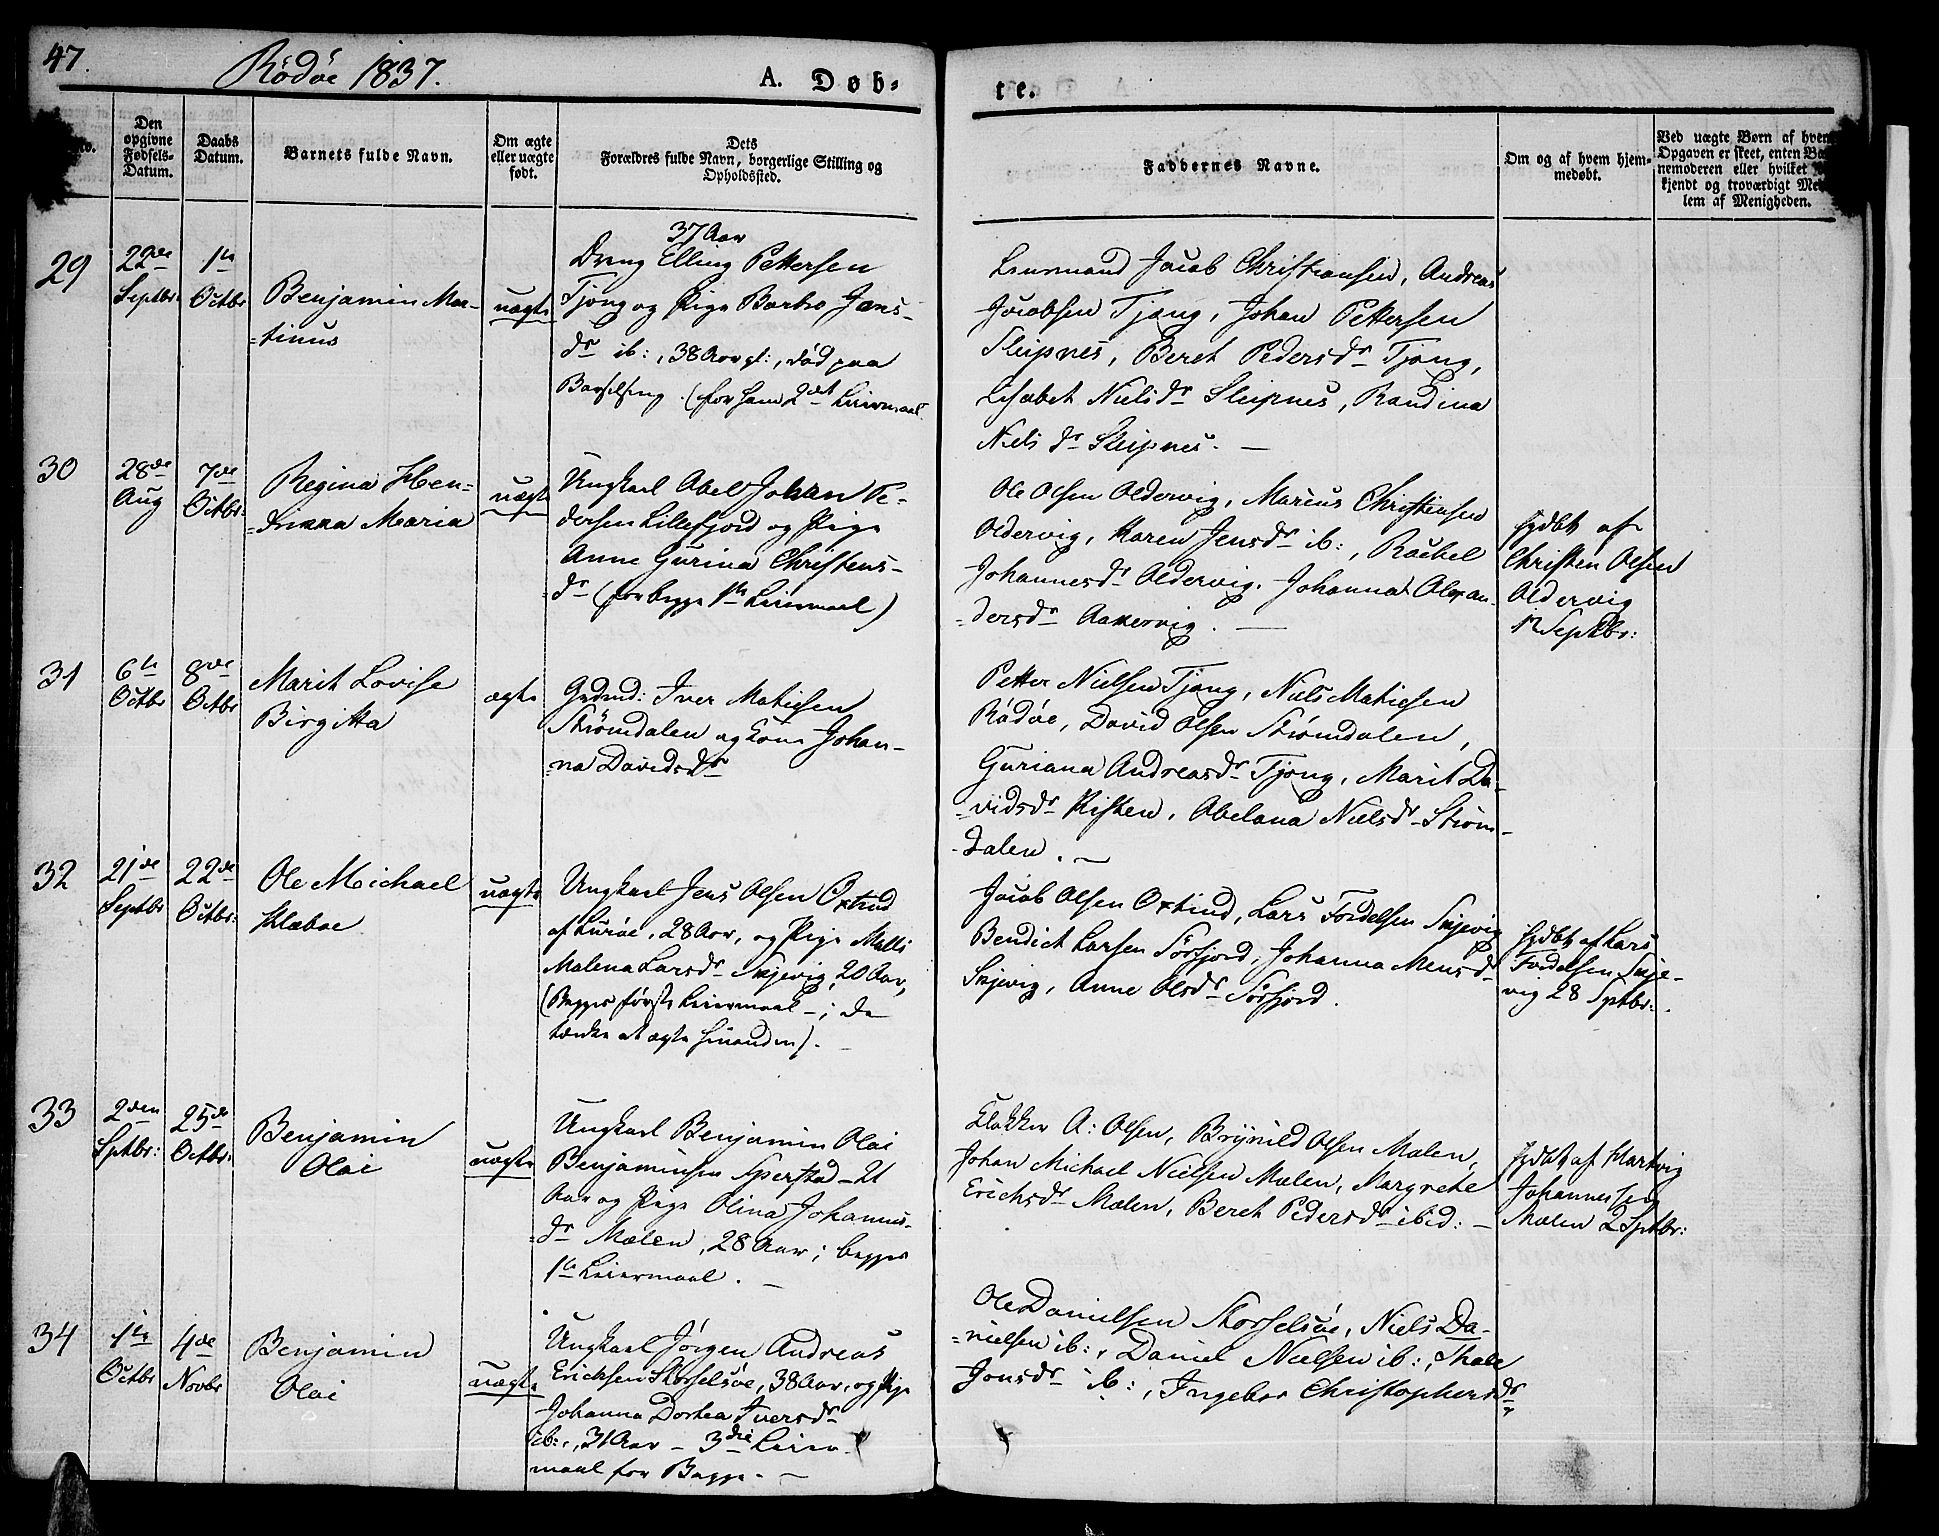 47.
Rödöe 1837.
A. Døb-
te.
No.
Den opgivne Fødsels-Datum.
Daabs Datum.
Barnets fulde Navn.
Om ægte eller uægte født.
Dets Forældres fulde Navn, borgerlige Stilling og Opholdssted.
Faddernes Navne.
Om og af hvem hjem-
medøbt.
Ved uægte Børn af hvem
Opgaven er skeet, enten Bar-
nemoderen eller hvilket
kjendt og troværdigt Med-
lem af Menigheden.
29
22de
Septbr:
1ste
Octbr
Benjamin Mar-
-tinus
uægte
37 Aar
Dreng Elling Pettersen
Tjong og Pige Barbro Jens-
dr ib:, 38 Aar gl:, død paa
Barselseng. (for ham 2det Leiermaal
Leensmand Jacob Christiansen, Andreas
Jacobsen Tjong, Johan Pettersen
Sleipnes, Beret Pedersdr Tjong,
Lisabet Nielsdr Sleipnes, Randina
Niels dr Sleipnes. —
30
28de
Aug
7de
Octbr:
Regina Hen-
-drikka Maria
uægte
Ungkarl Abel Johan Pe-
dersen Lillefjord og Pige
Anne Gurina Christens-
dr (for begge 1ste Leiermaal)
Ole Olsen Oldervig, Marius Christensen
Oldervig, Karen Jensdr ib:, Rachel
Johannesdr Oldervig. Johanna Alexan-
-dersdr Aakervig. —
hjdbt af
Christen Olsen
Oldervig
Septbr:
31
6te
Octbr
8de
Octbr
Marit Lovise
Birgitta
ægte
Grdmd: Iver Matiesen
Strömdalen og Kone Johan-
-na Davidsdr
Petter Nielsen Tjong, Niels Matiesen
Rödöe, David Olsen Strömdalen,
Guriana Andreasdr Tjong, Marit Da-
-vidsdr Kisten, Abelana Nielsdr Ström-
-dalen. —
32
21de
Septbr
22de
Octbr:
Ole Michael
Klæboe
uægte
Ungkarl Jens Olsen Oxtind
af Luröe, 28 Aar, og Pige Malli
Malena Larsdr Skjevig, 20 Aar,
(Begges første Leiermaal –; de
tænke at ægte hinanden). —
Jacob Olsen Oxtind, Lars Fordelsen Skjevig
Bendict Larsen Sörfjord, Johanna Monsdr
Skjevig, Anne Olsdr Sörfjord.
hjdbt af Lars
Fordelsen Skje-
vig 28 Sptbr:
33
2den
Sptbr:
25de
Octbr:
Benjamin
Olai
uægte
Ungkarl Benjamin Olai
Benjaminsen Sperstad – 21
Aar og Pige Olina Johannes-
-dr Mælen, 28 Aar; begges
1ste Leiermaal. —
Klokker A: Olsen, Brynild Olsen Mælen,
Johan Michael Nielsen Mælen, Margrete
Erichsdr Mælen, Beret Pedersdr ibid: —
hjdbt af Hartvig
Johannessen
Mælen 2 Sptbr:
34
1ste
Octbr
4de
Novbr
Benjamin
Olai
uægte
Ungkarl Jörgen Andreas
Ericksen Storselsöe, 38 Aar, og Pige
Johanna Dortea Iversdr
ib:, 31 Aar – 3die Leier-
maal for Begge. —
Ole Danielsen Storselsöe, Niels Da-
-nielsen ib:, Daniel Nielsen ib:, Thale
Jonsdr ib:, Ingebor Christophersdr